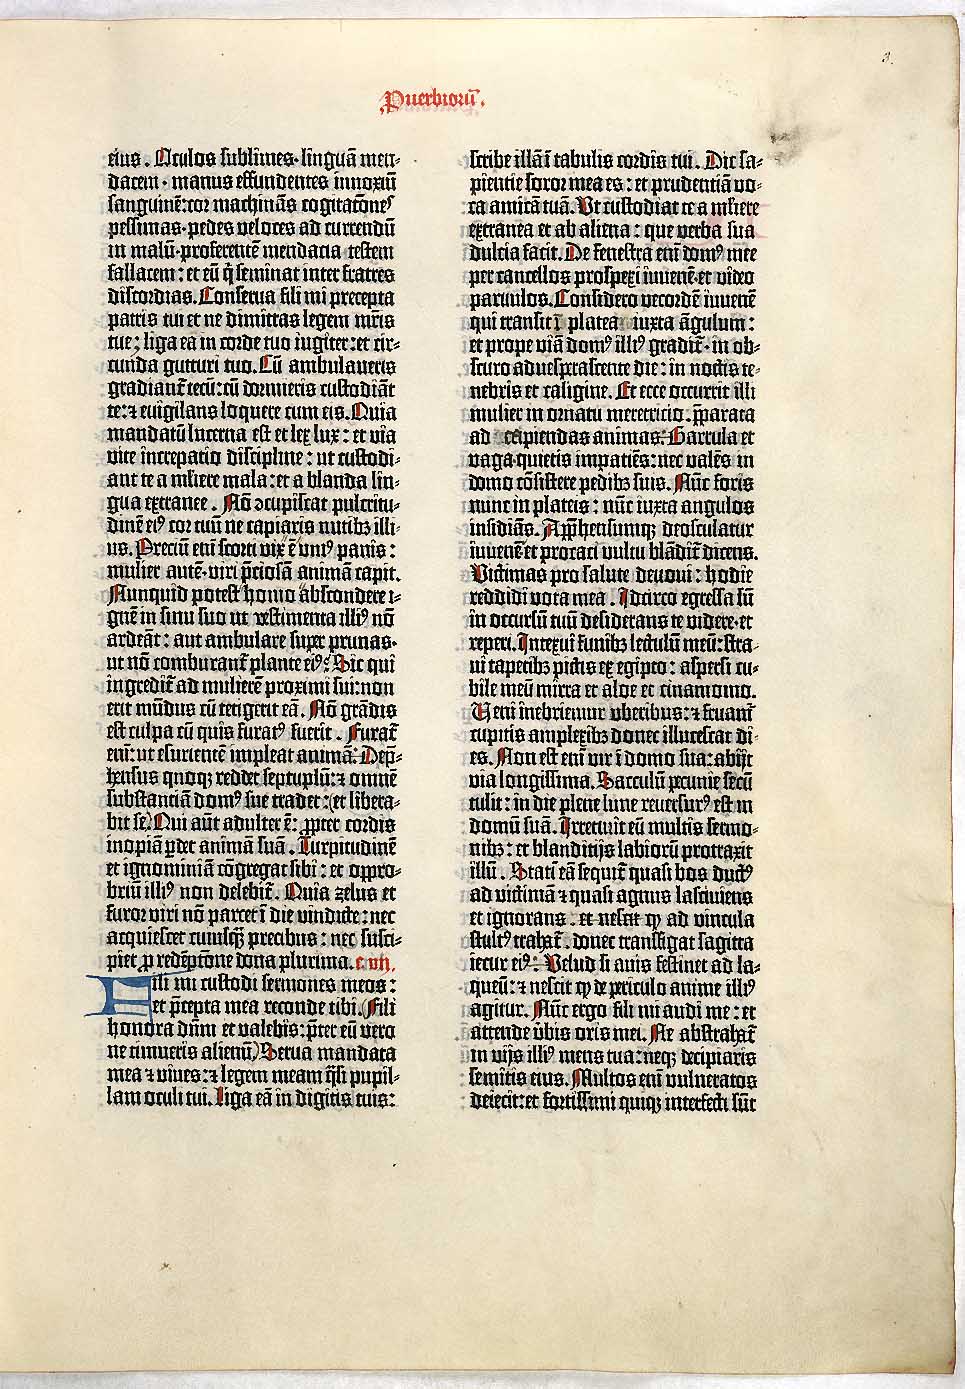 3.
Puerbiorū.
eius. Oculos sublimes· linguā men-
dacem· manus effundentes innoxiū
sanguinē: cor machinās cogitatōnes
pessimas· pedes veloces ad currendū
in malū· proferentē mendacia· testem
fallacem: et eū q̄ seminat inter fratres
discordias. Conserua fili mi precepta
patris tui et ne dimittas legem mr̄is
tue: liga eā in corde tuo iugiter: et cir-
cunda gutturi tuo. Cū ambulaueris
gradiant̄ tecū: cū dormieris custodiāt
te: ⁊ euigilans loquere cum eis. Quia
mandatū lucerna est et lex lux: et via
vite increpatio discipline: ut custodi-
ant te a mliere mala: et a blanda lin-
gua extranee. Nō ↄcupiscat pulcritu-
dinē eiꝰ cor tuū ne capiaris nutibꝫ illi-
us. Preciū eni scorti vix ē vniꝰ panis:
mulier autē· viri p̄ciosā animā capit.
Nunquid potest homo abscondere i-
gnē in sinu suo ut vestimenta illiꝰ nō
ardeāt: aut ambulare super prunas·
ut nō comburant̄ plante eiꝰ: Sic qui
ingredit̄ ad mulierē proximi sui: non
erit mūdus cū tetigerit eā. Nō grādis
est culpa cū quis furatꝰ fuerit. Furat̄
eni: ut esurientē impleat animā: Dep̄-
hensus quoqꝫ reddet septuplū: ⁊ omnē
substantiā domꝰ sue tradet: (et libera-
bit se) Qui aūt adulter ē: ꝓpter cordis
inopiā ꝑdet animā suā. Turpitudinē
et ignominiā cōgregat sibi: et oppro-
briū illiꝰ non delebit̄. Quia zelus et
furor viri nō parcet ī die vindicte: nec
acquiescet cuiusqꝫ precibus: nec susci-
piet ꝓ redēptōne dona plurima. c. vij.
Fili mi custodi sermones meos:
et p̄cepta mea reconde tibi. (Fili
honora dn̄m et valebis: p̄ter eū vero
ne timueris alienū) Serua mandata
mea ⁊ viues: ⁊ legem meam q̄si pupil-
lam oculi tui. Liga eā in digitis tuis:
scribe illā ī tabulis cordis tui. Dic sa-
pientie soror mea es: et prudentiā vo-
ca amicā tuā. Vt custodiat te a mliere
extranea et ab aliena: que verba sua
dulcia facit. De fenestra eni domꝰ mee
per cancellos prospexi iuuenē· et video
paruulos. Considero vecordē iuuenē
qui transit ī platea iuxta āgulum:
et prope viā domꝰ illiꝰ gradit̄· in ob-
scuro aduesperascente die: in noctis te-
nebris et caligine. Et ecce occurrit illi
mulier in ornatu meretricio· p̄parata
ad capiendas animas: Garrula et
vaga· quietis impatiēs: nec valēs in
domo cōsistere pedibꝫ suis. Nūc foris
nunc in plateis: nūc iuxta angulos
insidiās. App̄hensumqꝫ deosculatur
iuuenē et procaci vultu blādit̄ dicens.
Victimas pro salute deuoui: hodie
reddidi vota mea. Idcirco egressa sū
in occursū tuū desiderans te videre· et
reperi. Intexui funibꝫ lectulū meū: stra-
ui tapetibꝫ pictis ex egipto: aspersi cu-
bile meū mirra et aloe et cinamomo.
Veni inebriemur vberibus: ⁊ fruant̄
cupitis amplexibꝫ donec illucescat di-
es. Non est eni vir ī domo sua: abijt
via longissima. Sacculū pecunie secū
tulit: in die plene lune reuersurꝰ est in
domū suā. Irretiuit eū multis sermo-
nibꝫ: et blanditijs labiorū protraxit
illū. Stati eā sequit̄ quasi bos ductꝰ
ad victimā ⁊ quasi agnus lasciuiens
et ignorans: et nescit ꝙ ad vincula
stultꝰ trahat̄· donec transfigat sagitta
iecur eiꝰ: Velud si auis festinet ad la-
queū: ⁊ nescit ꝙ de periculo anime illiꝰ
agitur. Nūc ergo fili mi audi me: et
attende v̄bis oris mei. Ne abstrahat̄
in vijs illiꝰ mens tua: neqꝫ decipiaris
semitis eius. Multos eni vulneratos
deiecit: et fortissimi quiqꝫ interfecti sūt